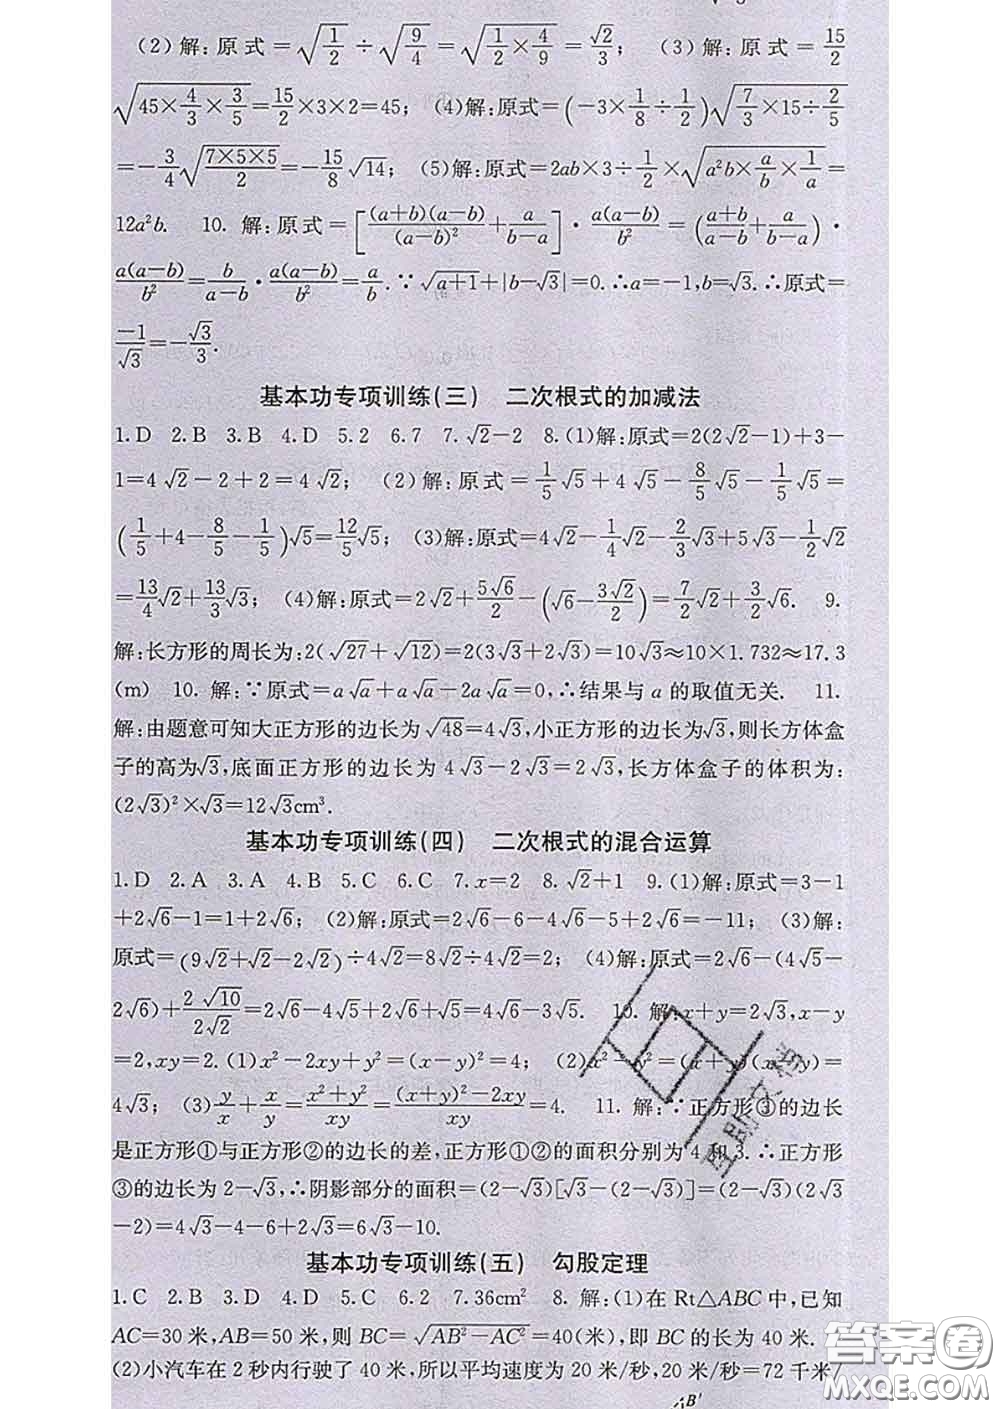 (2)解:原式=√(1/2)÷√(9/4)=√(1/2×4/9)=√2/3; (3)解:原式=15/2
√(45×4/3×3/5)=15/2×3×2=45; (4)解:原式=(-3×1/8÷1/2)√(7/3×15÷2/5)
=-3/4√(7×5×5/2)=-15/8√14; (5)解:原式=2ab×3÷1/2×√(a²b×a/b×1/a)=
12a²b. 10. 解:原式=[(a+b)(a-b)/(a-b)²+a/(b-a)]·a(a-b)/b²=((a+b)/(a-b)+a/(b-a))·
a(a-b)/b²=b/(a-b)·a(a-b)/b²=a/b.∵√(a+1)+|b-√3|=0.∴a=-1,b=√3.∴原式=
-1/√3=-√3/3.
基本功专项训练(三) 二次根式的加减法
1.D 2.B 3.B 4.D 5.2 6.7 7.√2-2 8.(1)解:原式=2(2√2-1)+3-
1=4√2-2+2=4√2; (2)解:原式=1/5√5+4√5-8/5√5-1/5√5
=(1/5+4-8/5-1/5)√5=12/5√5; (3)解:原式=4√2-1/4√2-2/3√3+5√3-1/2√2
=13/4√2+13/3√3; (4)解:原式=2√2+5√6/2-(√6-3√2/2)=7/2√2+3/2√6. 9.
解:长方形的周长为:2(√27+√12)=2(3√3+2√3)=10√3≈10×1.732≈17.3
(m) 10. 解:∵原式=a√a+a√a-2a√a=0,∴结果与a的取值无关. 11.
解:由题意可知大正方形的边长为√48=4√3,小正方形的边长为√3,则长方体盒
子的高为√3,底面正方形的边长为4√3-2√3=2√3,长方体盒子的体积为:
(2√3)²×√3=12√3cm³.
基本功专项训练(四) 二次根式的混合运算
1.D 2.A 3.A 4.B 5.C 6.C 7.x=2 8.√2+1 9.(1)解:原式=3-1
+2√6-1=1+2√6; (2)解:原式=2√6-6-4√6-5+2√6=-11; (3)解:
原式=(9√2+√2-2√2)÷4√2=8√2÷4√2=2; (4)解:原式=2√6-(4√5-
2√6)+2√10/2√2=2√6-4√5+2√6+√5=4√6-3√5. 10. 解:x+y=2√3,x-y
=2,xy=2.(1)x²-2xy+y²=(x-y)²=4; (2)x²-y²=(x+y)(x-y)=
4√3; (3)y/x+x/y=(x²+y²)/xy=((x+y)²-2xy)/xy=4. 11. 解:∵正方形③的边长
是正方形①与正方形②的边长的差,正方形①②的面积分别为4和3.∴正方形
③的边长为2-√3,∴阴影部分的面积=(2-√3)[√3-(2-√3)]=(2-√3)(2√3
-2)=4√3-4-6+2√3=6√3-10.
基本功专项训练(五) 勾股定理
1.C 2.B 3.D 4.D 5.C 6.2 7.36cm² 8. 解:(1)在Rt△ABC中,已知
AC=30米,AB=50米,则BC=√(AB²-AC²)=40(米),即BC的长为40米.
(2)小汽车在2秒内行驶了40米,所以平均速度为20米/秒,20米/秒=72千米/
B'
答案圈
MXQE.COM